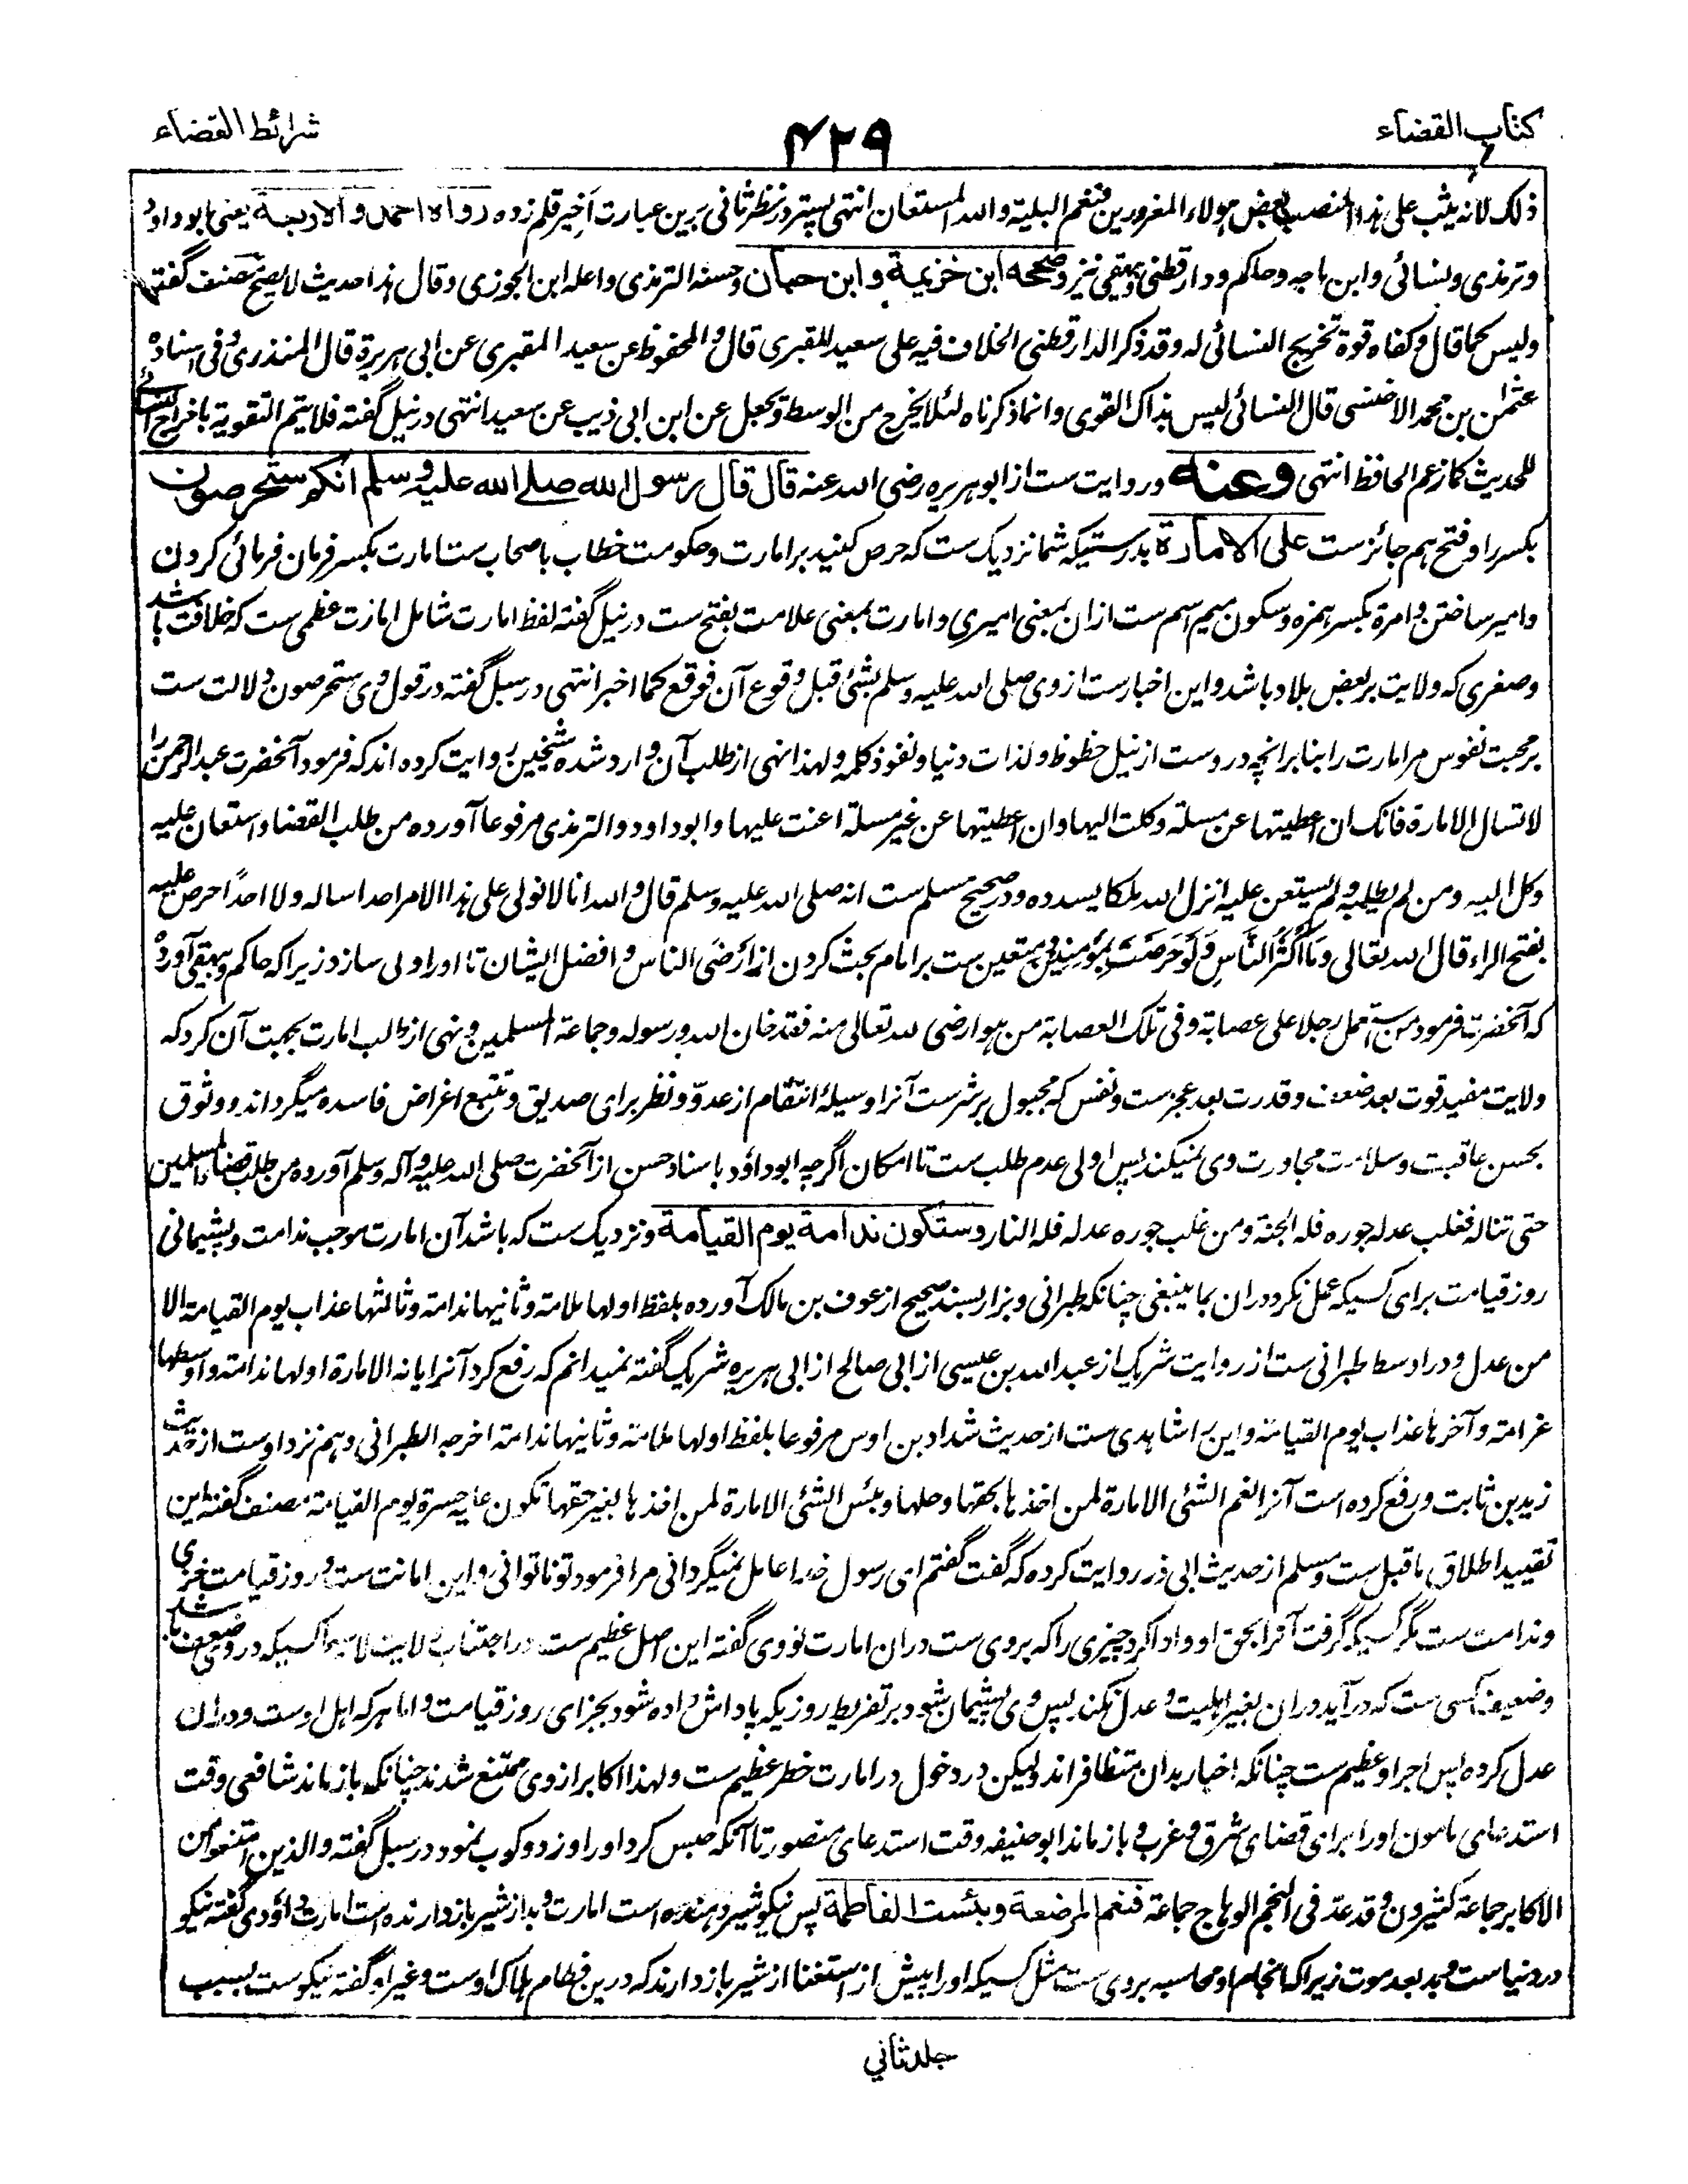 کتاب القضاء
۴۲۹
شرائط القضاء
ذلک لانه یثب علی هذا المنصب بعض هولاء المغرورین فنعم البلیة والله المستعان انتهی پستر در نظر ثانی برین عبارت اخیر قلم زده رواه احمد والاربعة یعنی ابوداود
وترمذی ونسائی وابن ماجه وحاکم ودارقطنی وبیهقی نیز وصححه ابن خزیمة وابن حبان وحسنه الترمذی واعله ابن الجوزی وقال هذا حدیث لا یصح مصنف گفته
ولیس کما قال وکفاه قوة تخریج النسائی له وقد ذکر الدارقطنی الخلاف فیه علی سعید المقبری قال والمحفوظ عن سعید المقبری عن ابی هریرة قال المنذری وفی اسناده
عثمن بن محمد الاخنسی قال النسائی لیس بذاک القوی وانما ذکرناه لئلا یخرج من الوسط ویجعل عن ابن ابی ذیب عن سعید انتهی در نیل گفته فلا یتم التقویة باخراج النسائی
للحدیث کما زعم الحافظ انتهی وعنه وروایت ست از ابو هریره رضی الله عنه قال قال رسول الله صلے الله علیه وسلم انکم ستحرصون
بکسر را و فتح هم جائز ست علی الامارة بدرستیکه شما نزدیک ست که حرص کنید بر امارت وحکومت خطاب باصحاب ست امارت بکسر فرمان فرمائی کردن
وامیر ساختن وامرة بکسر همزه وسکون میم اسم ست ازان بمعنی امیری وامارت بمعنی علامت بفتح ست در نیل گفته لفظ امارت شامل امارت عظمی ست که خلافت باشد
وصغری که ولایت بر بعض بلاد باشد واین اخبار ست از وی صلی الله علیه وسلم بشئ قبل وقوع آن فوقع کما اخبر انتهی در سبل گفته در قول وی ستحرصون دلالت ست
بر محبت نفوس مر امارت را بنابر انچه دروست از نیل حظوظ ولذات دنیا ونفوذ کلمه ولهذا نهی از طلب آن وارد شده شیخین روایت کرده اند که فرمود آنحضرت عبدالرحمن را
لا تسال الامارة فانک ان اعطیتها عن مسئلة وکلت الیها وان اعطیتها عن غیر مسئلة اعنت علیها وابوداود والترمذی مرفوعا آورده من طلب القضا واستعان علیه
وکل الیه ومن لم یطلبه ولم یستعن علیه انزل الله ملکا یسدده ودر صحیح مسلم ست انه صلی الله علیه وسلم قال والله انا لا نولی علی هذا الامر احدا ساله ولا احدا حرص علیه
بفتح الراء قال الله تعالی وما اکثر الناس ولو حرصت بمؤمنین ومتعین ست بر امام بحث کردن از ارضی الناس وافضل ایشان تا او را ولی سازد زیراکه حاکم وبیهقی آورده
که آنحضرت فرمود من استعمل رجلا علی عصابة وفی تلک العصابة من هو ارضی لله تعالی منه فقد خان الله ورسوله وجماعة المسلمین ونهی از طالب امارت بجهت آن کرد که
ولایت مفید قوت بعد ضعف وقدرت بعد عجز ست ونفس که مجبول بر شر ست آنرا وسیلۂ انتقام از عدو ونظر برای صدیق وتتبع اغراض فاسده میگرداند ووثوق
بحسن عاقبت وسلامت مجاورت وی نمیکند پس اولی عدم طلب ست تا امکان اگرچه ابوداؤد باسناد حسن از آنحضرت صلی الله علیه وآله وسلم آورده من طلب قضاء المسلمین
حتی تناله فغلب عدله جوره فله الجنة ومن غلب جوره عدله فله النار وستکون ندامة یوم القیامة ونزدیک ست که باشد آن امارت موجب ندامت وپشیمانی
روز قیامت برای کسیکه عمل نکرد دران بما ینبغی چنانکه طبرانی وبزار بسند صحیح از عوف بن مالک آورده بلفظ اولها ملامة وثانیها ندامة وثالثها عذاب یوم القیامة الا
من عدل ودر اوسط طبرانی ست از روایت شریک از عبدالله بن عیسی از ابی صالح از ابی هریره شریک گفته نمیدانم که رفع کرد آنرا یا نه الامارة اولها ندامة واوسطها
غرامة وآخرها عذاب یوم القیامة واین را شاهدی ست از حدیث شداد بن اوس مرفوعا بلفظ اولها ملامة وثانیها ندامة اخرجه الطبرانی وهم نزد اوست از حدیث
زید بن ثابت ورفع کرده است آنرا نعم الشئ الامارة لمن اخذها بحقها وحلها وبئس الشئ الامارة لمن اخذها بغیر حقها تکون علیه حسرة یوم القیامة مصنف گفته این
تقیید اطلاق ماقبل ست ومسلم از حدیث ابی ذر روایت کرده که گفت گفتم ای رسول خدا عامل نمیگردانی مرا فرمود تو ناتوانی واین امانت ست وروز قیامت خزی
وندامت ست مگر کسیکه گرفت آنرا بحق او وادا کرد چیزی را که بروی ست دران امارت نووی گفته این اصل عظیم ست در اجتناب ولایت لا سیما کسیکه در وی ضعف باشد
وضعیف کسی ست که در آید دران بغیر اهلیت وعدل نکند پس وی پشیمان شود بر تفریط روزیکه پاداش داده شود بجزای روز قیامت واما هرکه اهل اوست ودران
عدل کرده پس اجر او عظیم ست چنانکه اخبار بدان متظافر اند ولیکن در دخول در امارت خطر عظیم ست ولهذا اکابر از وی ممتنع شدند چنانکه باز ماند شافعی وقت
استدعای مامون او را برای قضای شرق وغرب وباز ماند ابو حنیفه وقت استدعای منصور تا آنکه حبس کرد او را وزد وکوب نمود در سبل گفته والذین امتنعوا من
الاکابر جماعة کثیرون وقد عد فی النجم الوهاج جماعة فنعم المرضعة وبئست الفاطمة پس نیکو شیر دهنده است امارت وبد از شیر باز دارنده است امارت داؤدی گفته نیکو
در دنیاست وبد بعد موت زیراکه انجام او محاسبه بروی ست مثل کسیکه او را پیش از استغنا از شیر باز دارند که درین فطام هلاک اوست وغیر او گفته نیکوست بسبب
جلد ثانی